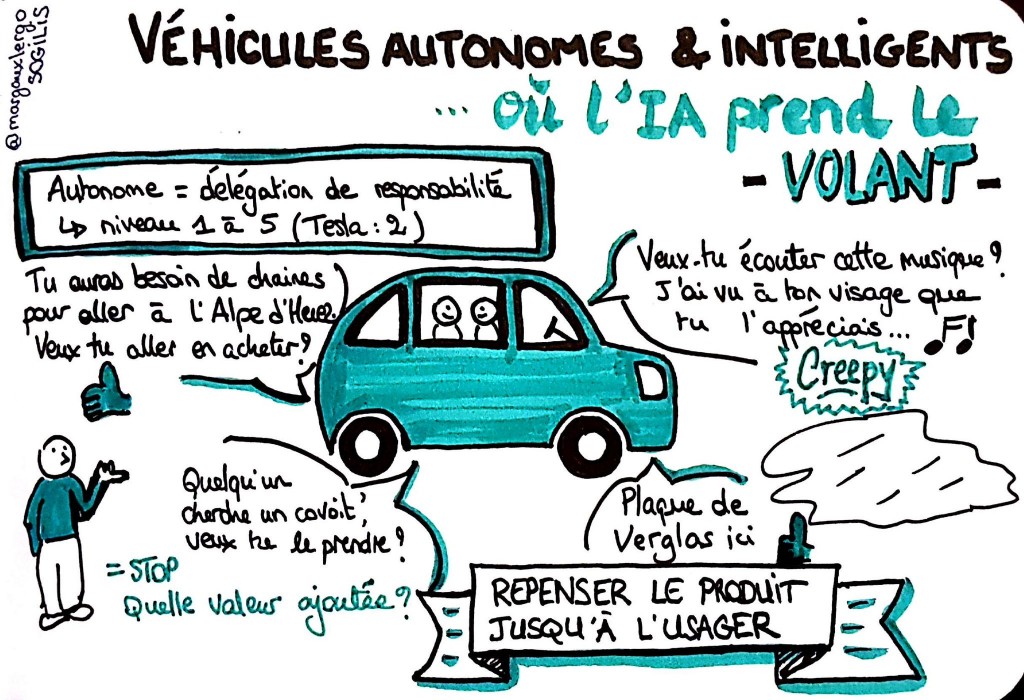 @margauxlergo
SOGILIS
VÉHICULES AUTONOMES & INTELLIGENTS
... où l'IA prend le
- VOLANT -
Autonome = délégation de responsabilité
↳ niveau 1 à 5 (Tesla : 2)
Tu auras besoin de chaines
pour aller à l'Alpe d'Huez.
Veux tu aller en acheter?
Veux-tu écouter cette musique?
J'ai vu à ton visage que
tu l'appréciais...
Creepy
Quelqu'un
cherche un covoit',
veux tu le prendre?
= STOP
Quelle valeur ajoutée?
Plaque de
Verglas ici
REPENSER LE PRODUIT
JUSQU'À L'USAGER